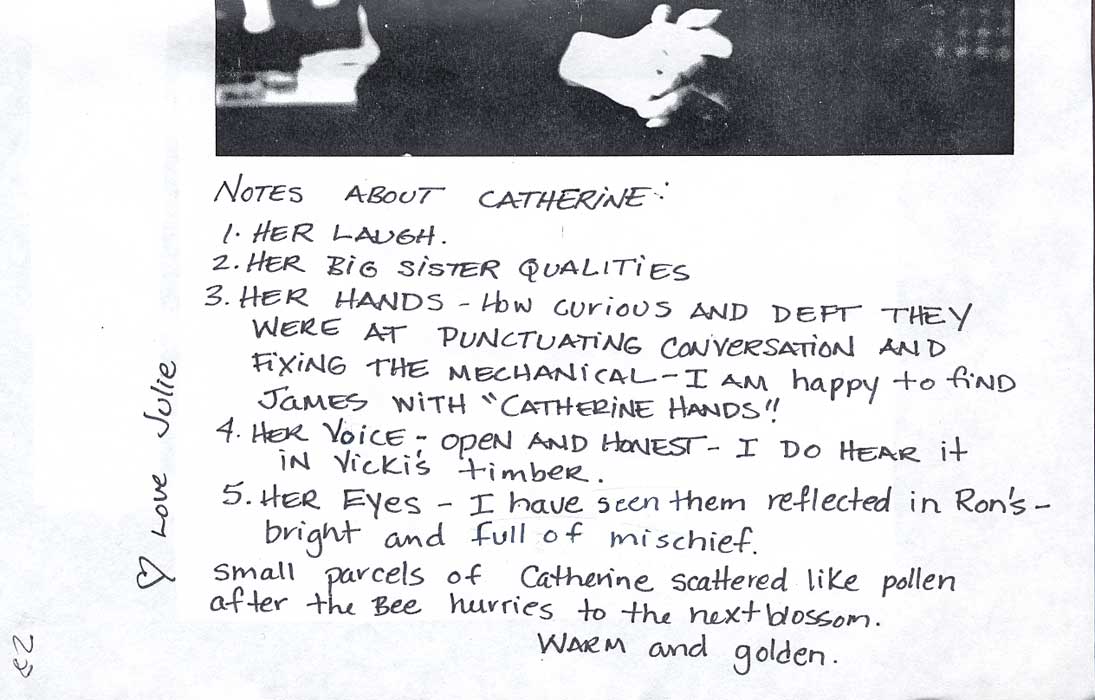 NOTES ABOUT CATHERINE:
1. HER LAUGH.
2. HER BIG SISTER QUALITIES
3. HER HANDS - How curious AND DEFT THEY
WERE AT PUNCTUATING CONVERSATION AND
FIXING THE MECHANICAL - I AM happy to find
JAMES WITH "CATHERINE HANDS"!
4. HER VOICE - open AND HONEST - I DO HEAR it
in Vicki's timber.
5. HER Eyes - I have seen them reflected in Ron's -
bright and full of mischief.
small parcels of Catherine scattered like pollen
after the Bee hurries to the next blossom.
WARM and golden.
♡ Love Julie